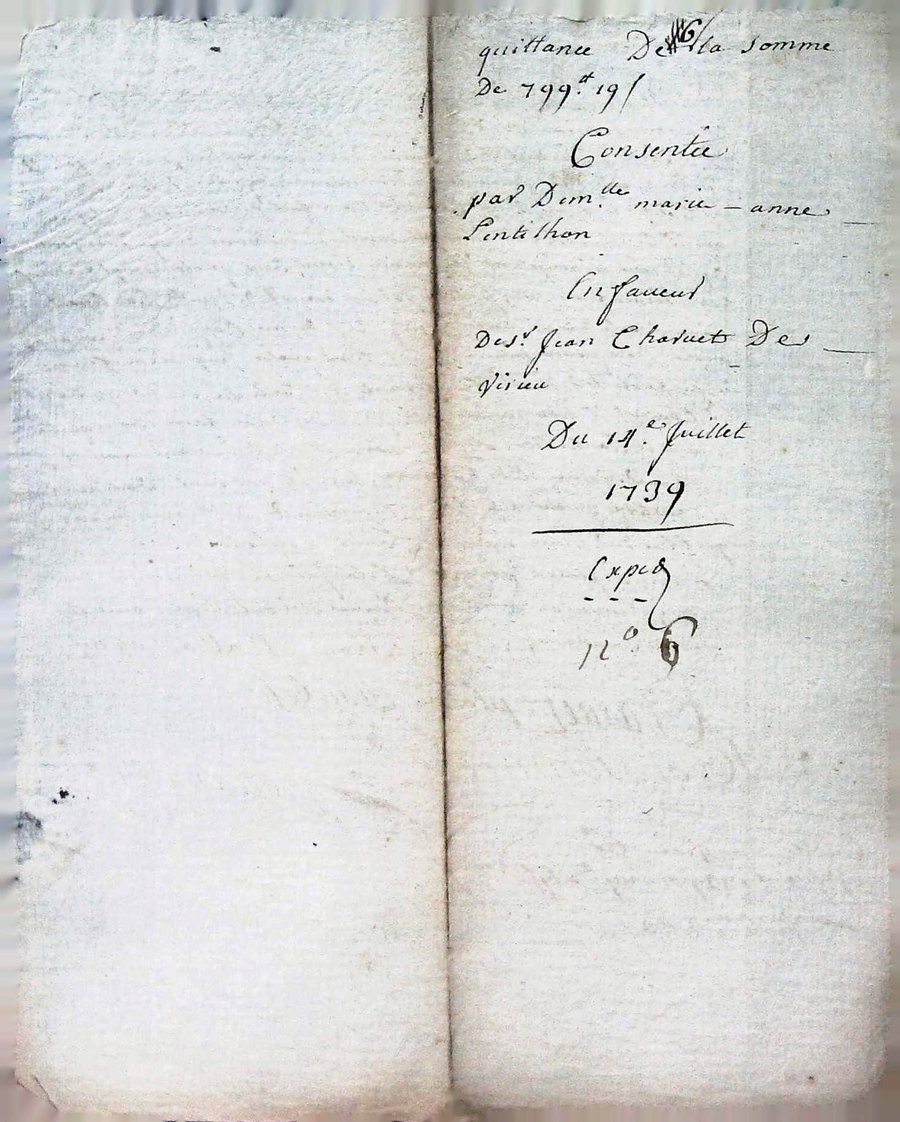 6
quittance De la somme
De 799.tt 19 s
Consentie
par Dem.lle marie - anne
Lentilhon
En faveur
De sr Jean Charvet De
Virieu
Du 14.e Juillet
1739
Exped
n° 6